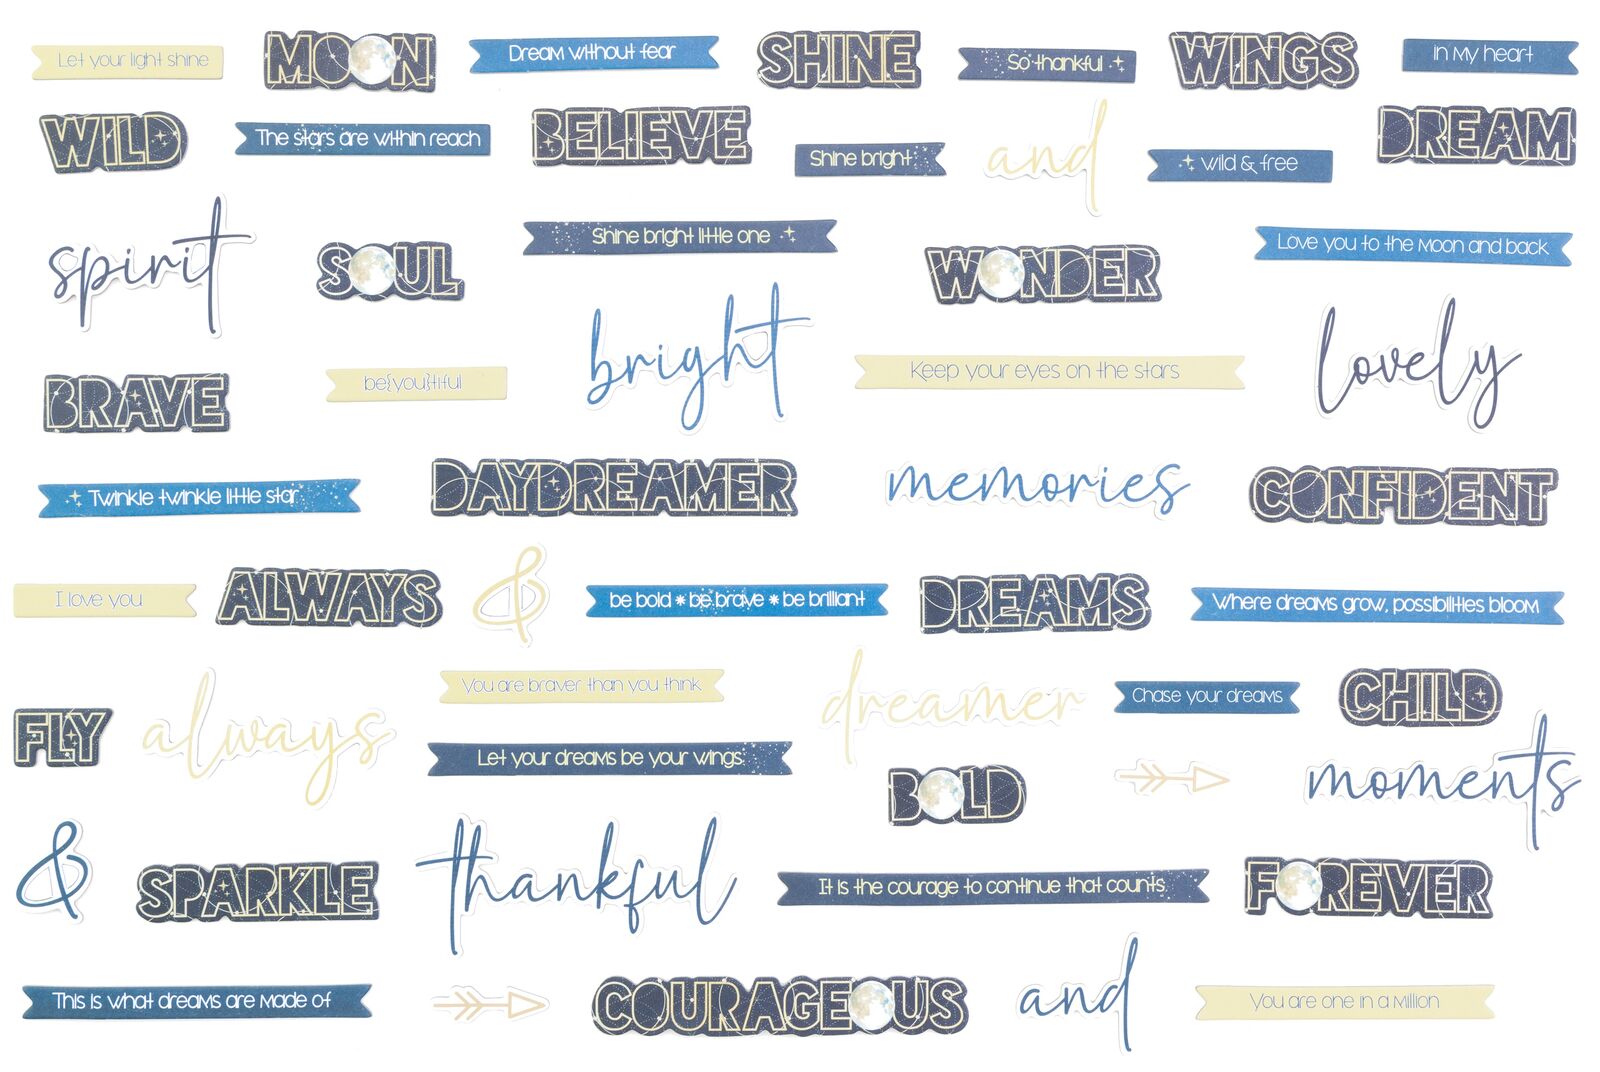 Let your light shine
MOON
Dream without fear
SHINE
So thankful
WINGS
in My heart
WILD
The stars are within reach
BELIEVE
Shine bright
and
wild & free
DREAM
spirit
SOUL
Shine bright little one
WONDER
Love you to the Moon and back
BRAVE
be{you}tiful
bright
Keep your eyes on the stars
lovely
Twinkle twinkle little star
DAYDREAMER
memories
CONFIDENT
I love you
ALWAYS
&
be bold * be brave * be brilliant
DREAMS
Where dreams grow, possibilities bloom
FLY
always
You are braver than you think
dreamer
Chase your dreams
CHILD
Let your dreams be your wings
BOLD
moments
&
SPARKLE
thankful
It is the courage to continue that counts.
FOREVER
This is what dreams are Made of
COURAGEOUS
and
You are one in a Million